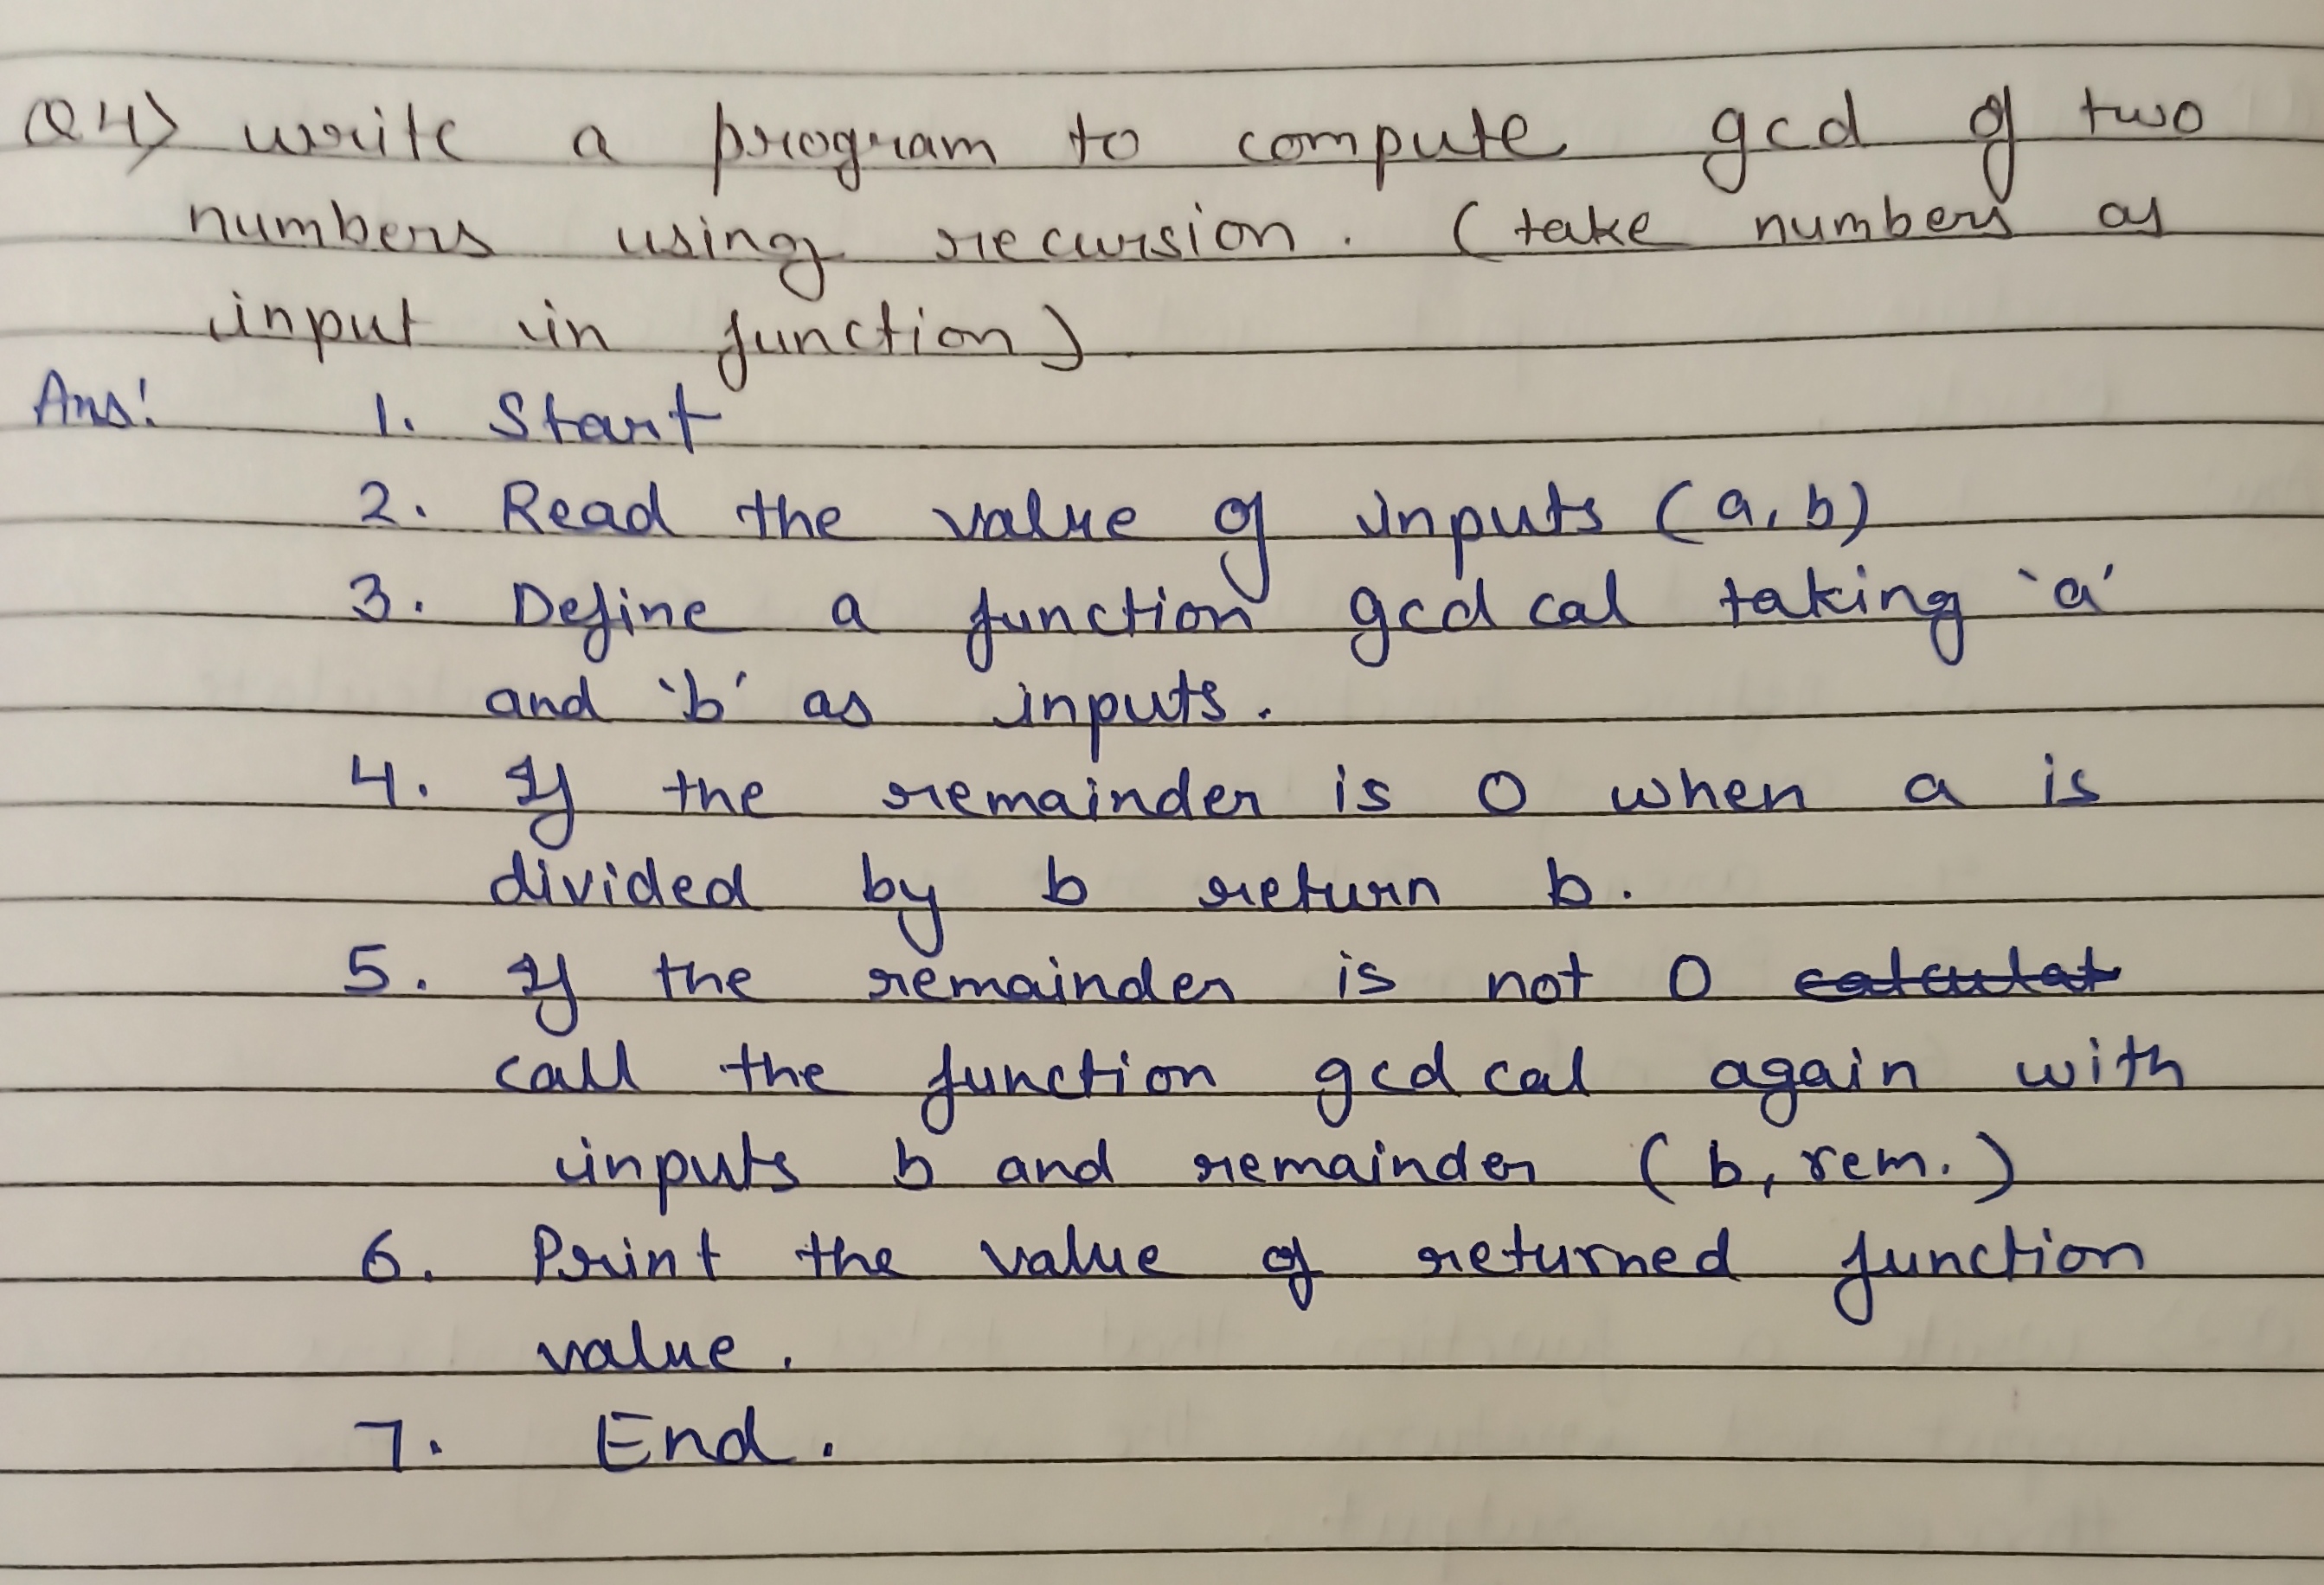 Q4) write a program to compute gcd of two
numbers using recursion. (take numbers as
input in function)
Ans: 1. Start
2. Read the value of inputs (a, b)
3. Define a function gcd cal taking 'a'
and 'b' as inputs.
4. If the remainder is 0 when a is
divided by b return b.
5. If the remainder is not 0 calculat
call the function gcd cal again with
inputs b and remainder (b, rem.)
6. Print the value of returned function
value.
7. End.